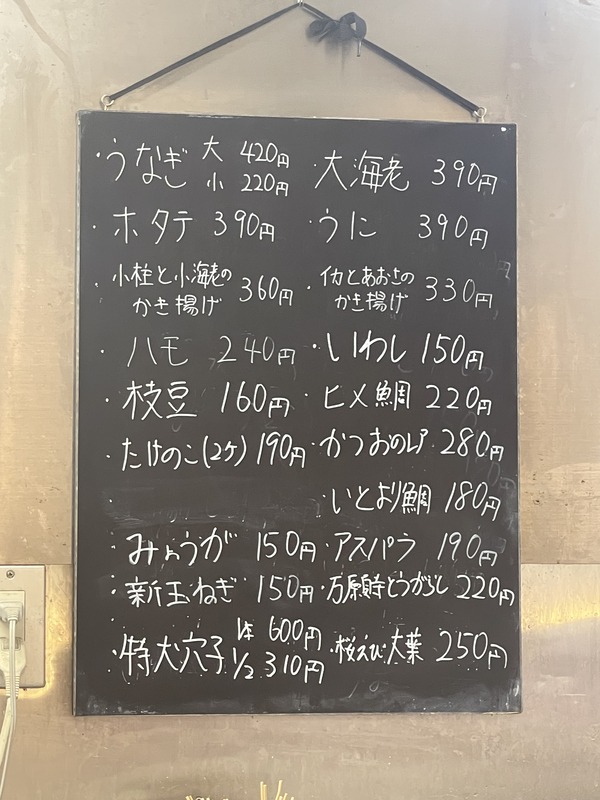 ・うなぎ 大 420円
小 220円
・大海老 390円
・ホタテ 390円
・うに 390円
・小柱と小海老の
かき揚げ 360円
・イカとあおさの
かき揚げ 330円
・ハモ 240円
・いわし 150円
・枝豆 160円
・ヒメ鯛 220円
・たけのこ(2ケ) 190円
・かつおのレア 280円
・いとより鯛 180円
・みょうが 150円
・アスパラ 190円
・新玉ねぎ 150円
・万願時とうがらし 220円
・特大穴子 1本 600円
1/2 310円
・桜えび大葉 250円